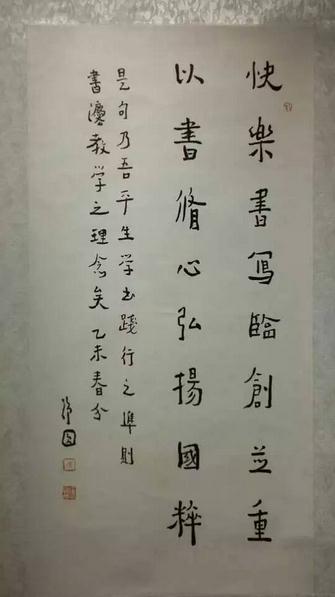 快樂書寫臨創並重
以書脩心弘揚國粹
是句乃吾平生学书踐行之準則
書灋教学之理念矣乙未春分